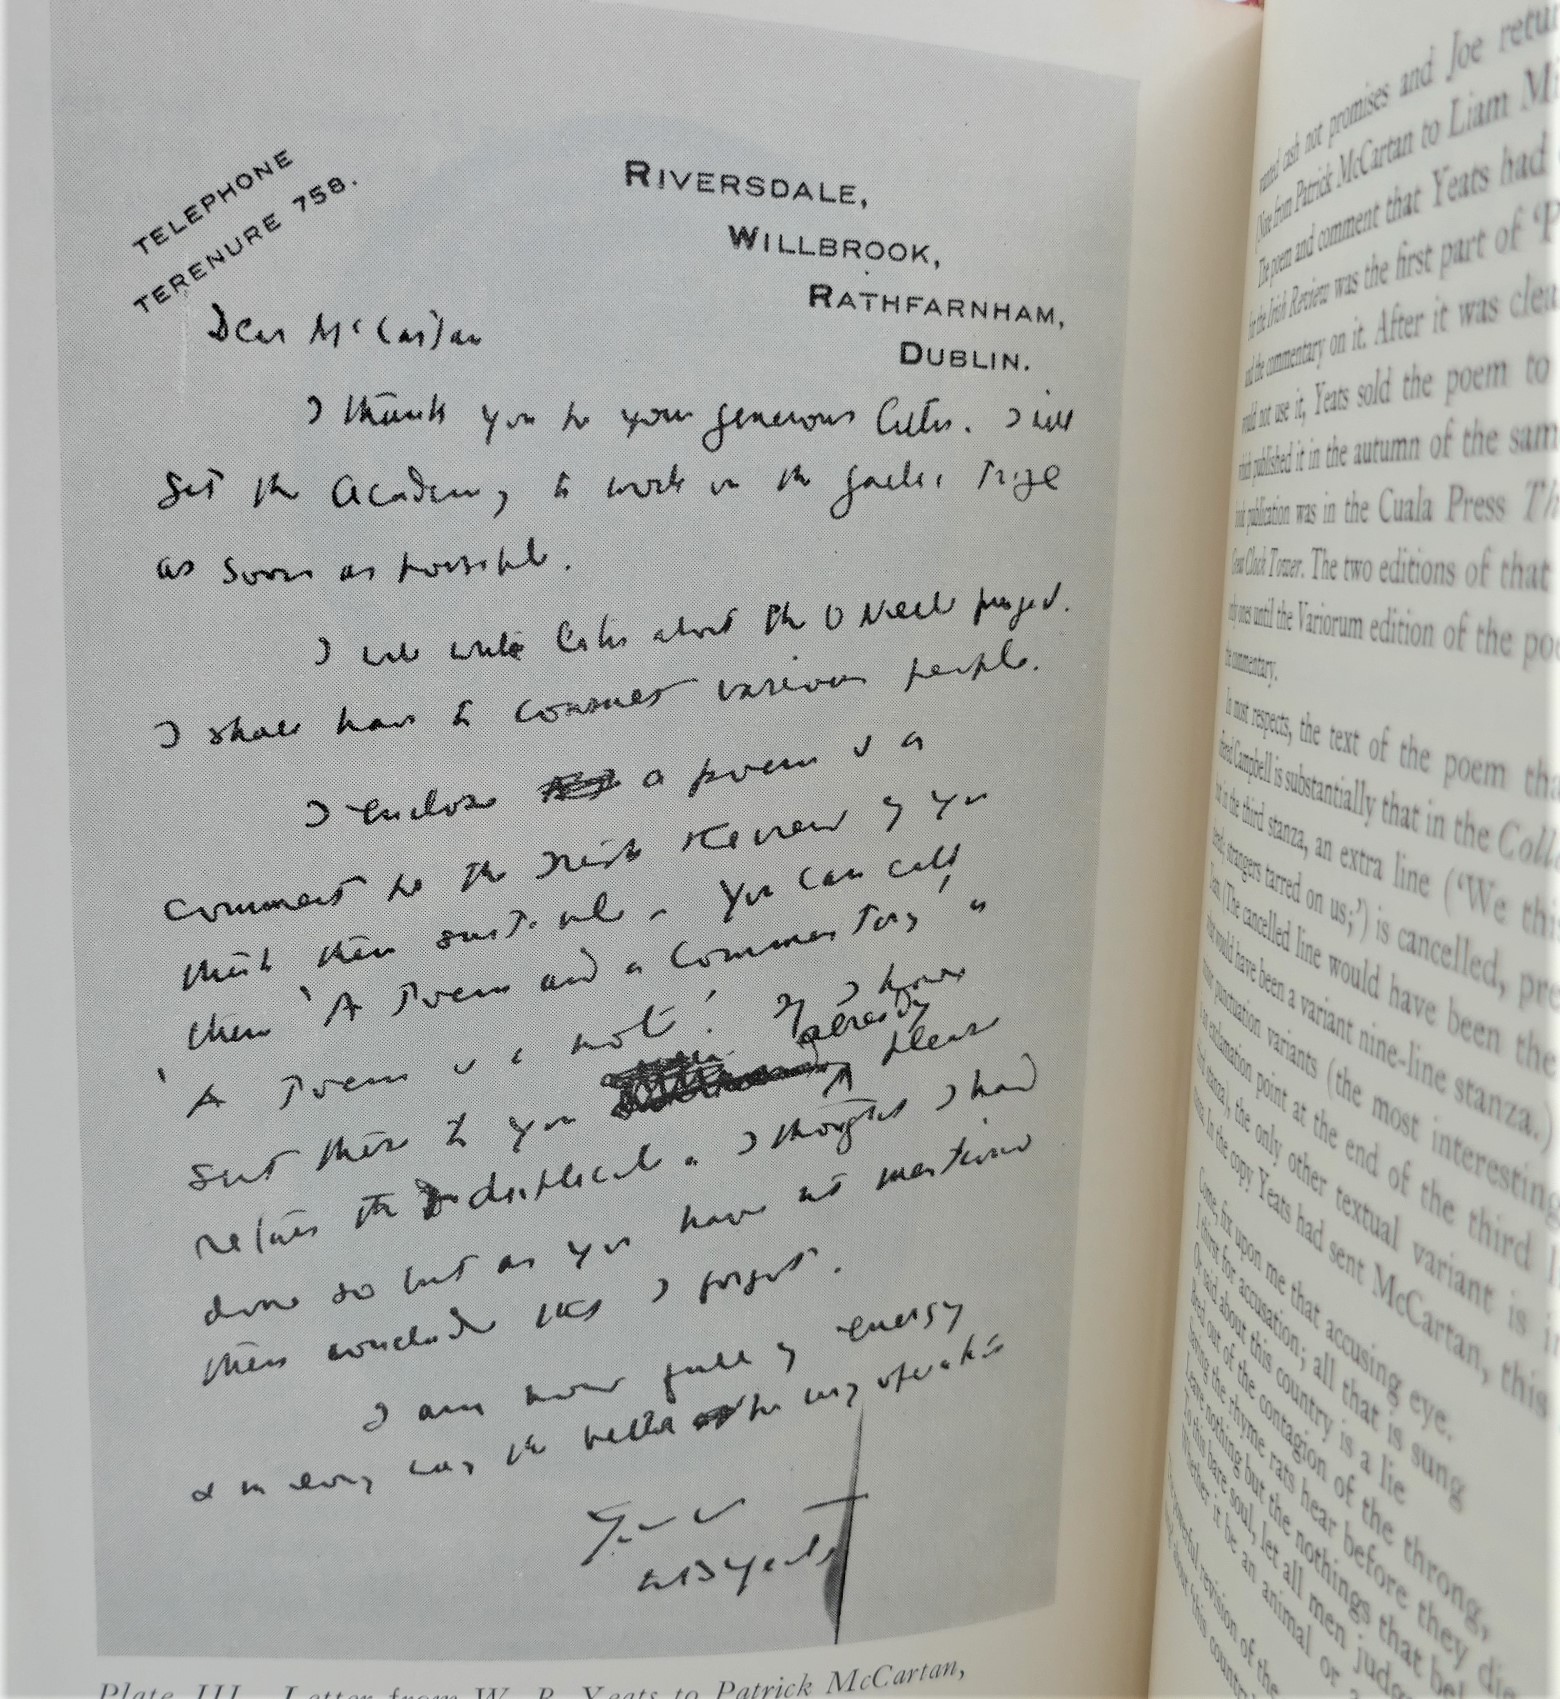 TELEPHONE
TERENURE 758.
RIVERSDALE,
WILLBROOK,
RATHFARNHAM,
DUBLIN.
Dear McCartan
I thank you for your generous letter. I will
get the Academy to work on the Gaelic Prize
as soon as possible.
I will write later about the O Neill project.
I shall have to consult various people.
I enclose a poem & a
comment for the Irish Review if you
think them suitable. You can call
them 'A Poem and a Commentary' or
'A Poem & a note'. If I have
already
sent these to you please
return the duplicate. I thought I had
done so but as you have not mentioned
them conclude that I forgot.
I am now full of energy
& in every way the better for my operation
Yours
W B Yeats
Plate III. Letter from W. B. Yeats to Patrick McCartan,
wanted cash not promises and Joe
(Note from Patrick McCartan to Liam
The poem and comment that Yeats had
for the Irish Review was the first part of
and the commentary on it. After it was
would not use it, Yeats sold the poem to
which published it in the autumn of the
book publication was in the Cuala Press
Great Clock Tower. The two editions of that
only ones until the Variorum edition of the
the commentary.
In most respects, the text of the poem
Campbell is substantially that in the
but in the third stanza, an extra line ('We
strangers tarred on us;') is cancelled,
(The cancelled line would have been the
would have been a variant nine-line stanza.)
punctuation variants (the most interesting
exclamation point at the end of the third
stanza), the only other textual variant is
In the copy Yeats had sent McCartan, this
Come, fix upon me that accusing eye.
I thirst for accusation; all that is sung
Or said about this country is a lie
Bred out of the contagion of the throng,
Saving the rhyme rats hear before they die
Leave nothing but the nothings that
To this bare soul, let all men
Whether it be an animal or
powerful revision of the
about 'this